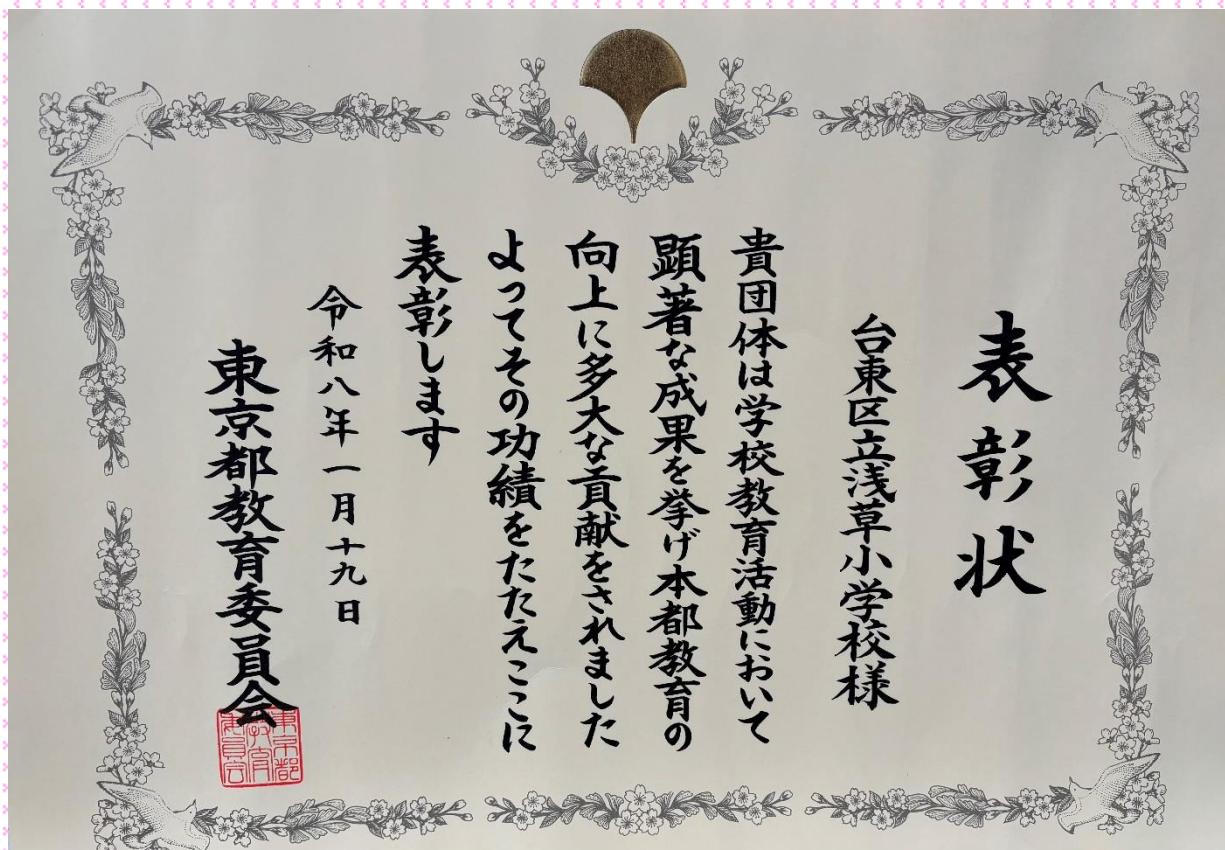 表彰状
台東区立浅草小学校様
貴団体は学校教育活動において
顕著な成果を挙げ本都教育の
向上に多大な貢献をされました
よってその功績をたたえここに
表彰します
令和八年一月十九日
東京都教育委員会
東京都
教育
委員会